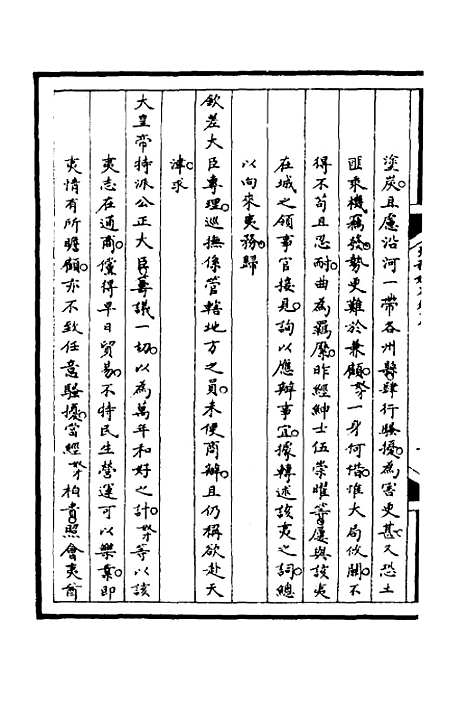 塗炭且慮沿河一帶各州縣肆行騷擾為害更甚又恐土
匪乘機竊發勢更難於兼顧。奴才一身何惜惟大局攸關不
得不苟且忍耐曲為羈縻昨經紳士伍崇曜等屢與該夷
在城之領事官接見。詢以應辦事宜。據轉述該夷之詞總
以向來夷務歸
欽差大臣專理巡撫係管轄地方之員未便商辦。且仍稱欲赴天
津求
大皇帝特派公正大臣籌議一切以為萬年和好之計。奴才等以該
夷志在通商。儻得早日貿易不特民生營運可以樂業即
夷情有所瞻顧。亦不致任意騷擾。當經奴才柏貴照會夷酋